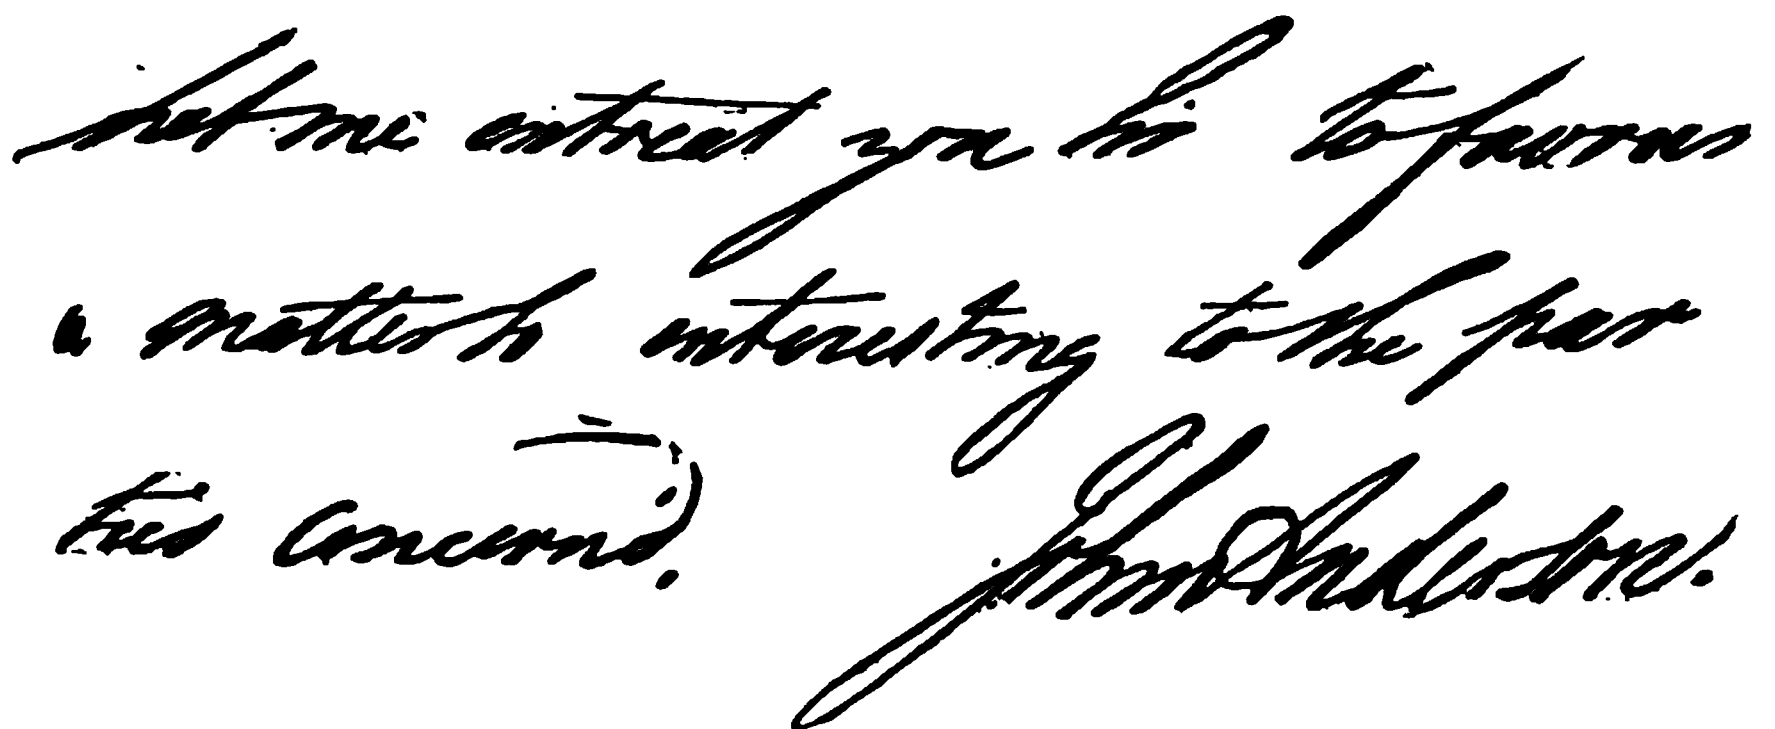 Let me entreat you Sir to favour
a matter so interesting to the par
ties concernd. John Anderson.